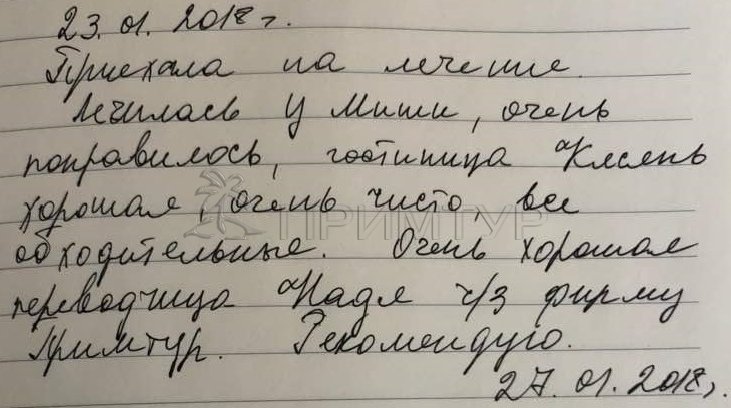 23.01.2018г.
Приехала на лечение.
Лечилась у Миши, очень
понравилось, гостиница "Клёен
хорошая, очень чисто, все
обходительные. Очень хорошая
переводчица Надя ч/з фирму
Примтур. Рекомендую.
27.01.2018г.
ПРИМТУР